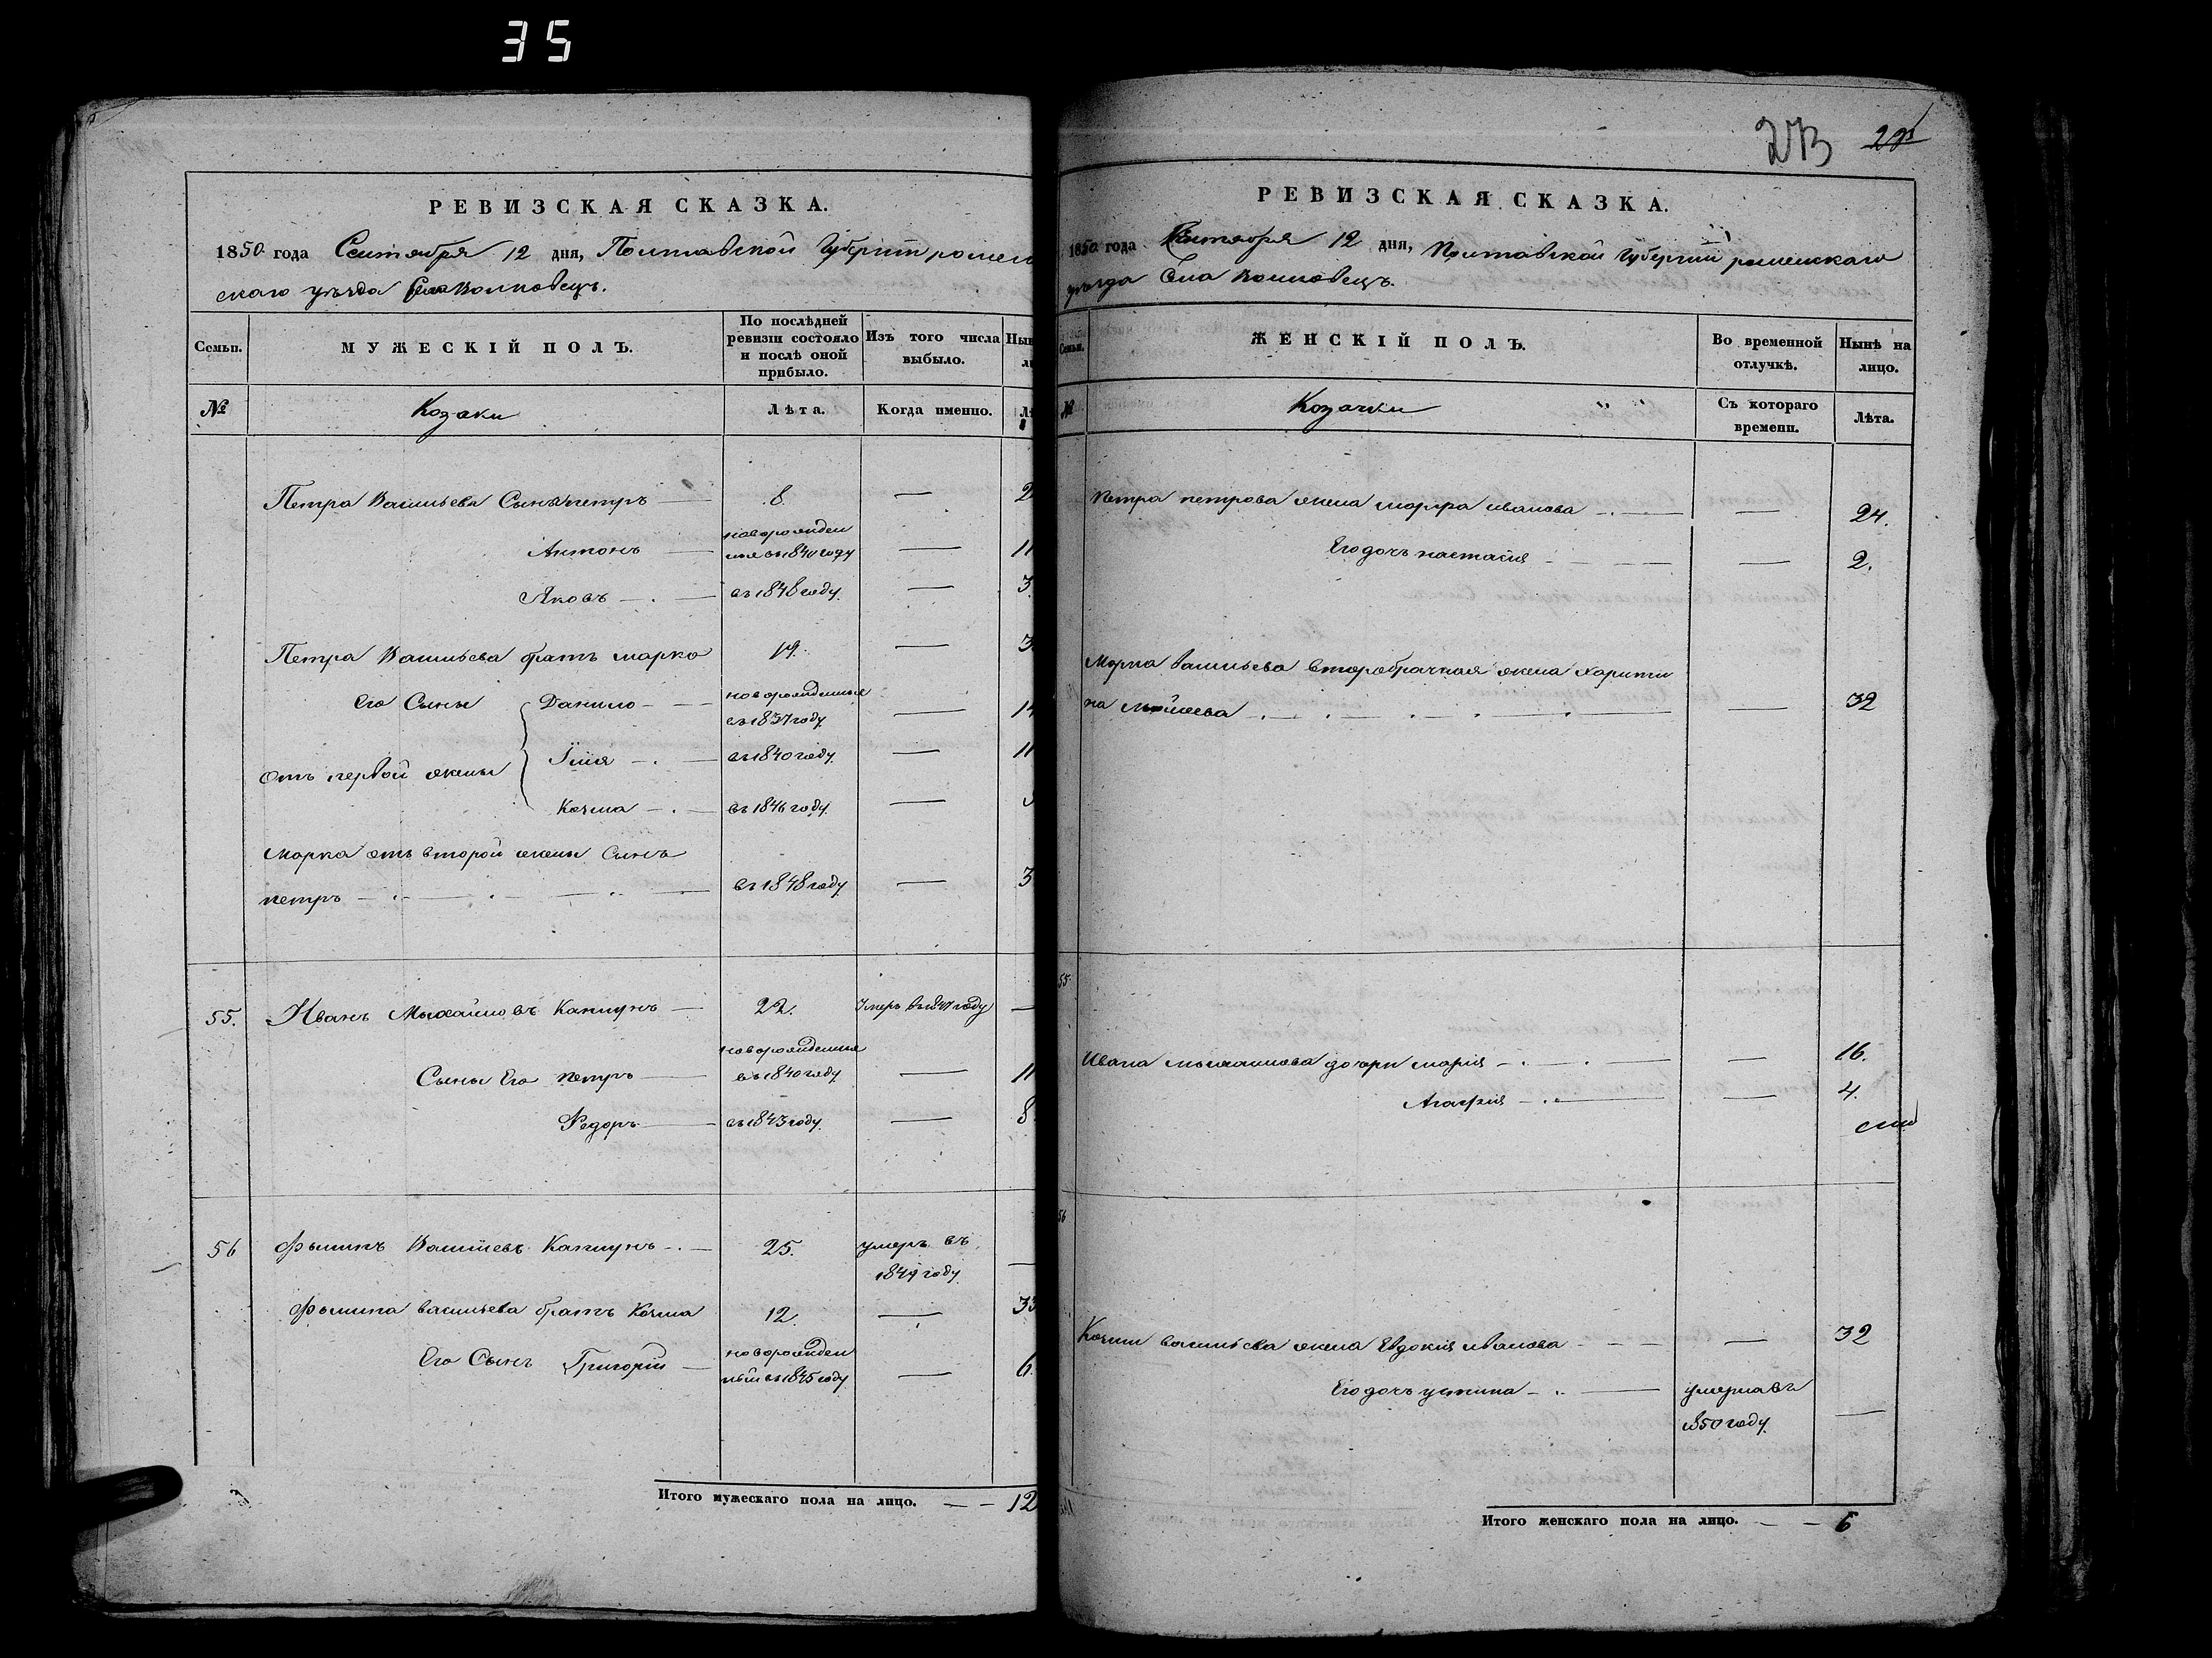 35
РЕВИЗСКАЯ СКАЗКА.
1850 года Сентября 12 дня, Полтавской Губерніи ромен
скаго уѣзда Села Волковецъ.
Семьи.
МУЖЕСКІЙ ПОЛЪ.
По послѣдней
ревизіи состояло
и послѣ оной
прибыло.
Изъ того числа
выбыло.
№
Козаки
Лѣта.
Когда именно.
Петра Васильева Сынъ петръ 8. — 2
Антонъ новорожден
ные въ 1840 году — 11
Яковъ въ 1848 году — 3
Петра Васильева братъ марко 19. — 3
Его Сыны Данило новорожденные
въ 1837 году — 14
Отъ первой жены Їлія въ 1840 году — 11
Козма въ 1846 году —
Марка отъ второй жены Сынъ
петръ въ 1848 году — 3
55. Иванъ Михайловъ Капцунъ 22. Умеръ въ 1847 году —
Сыны Его петръ новорожденные
въ 1840 году — 11
Федоръ въ 1843 году — 8
56 Филипъ Васильевъ Капцунъ 25. умеръ въ
1849 году —
Филипа васильева братъ Козма 12. — 33
Его Сынъ Григорій новорожден
ный въ 1845 году — 6.
Итого мужескаго пола на лицо. — 12
273
РЕВИЗСКАЯ СКАЗКА.
1850 года Сентября 12 дня, Полтавской Губерніи роменскаго
уѣзда Села Волковецъ.
Семьи.
ЖЕНСКІЙ ПОЛЪ.
Во временной
отлучкѣ.
Нынѣ на
лицо.
№
Козачки
Съ котораго
времени.
Лѣта.
Петра петрова жена марфа иванова — 24.
Его дочь настасія — 2.
Марка васильева второбрачная жена харити
на — 32
55.
Ивана михаилова дочери марія — 16.
Агафія — 4.
56
Козми васильева жена Евдокія иванова — 32
Его дочь устина умерла въ
1850 году —
Итого женскаго пола на лицо. — 6